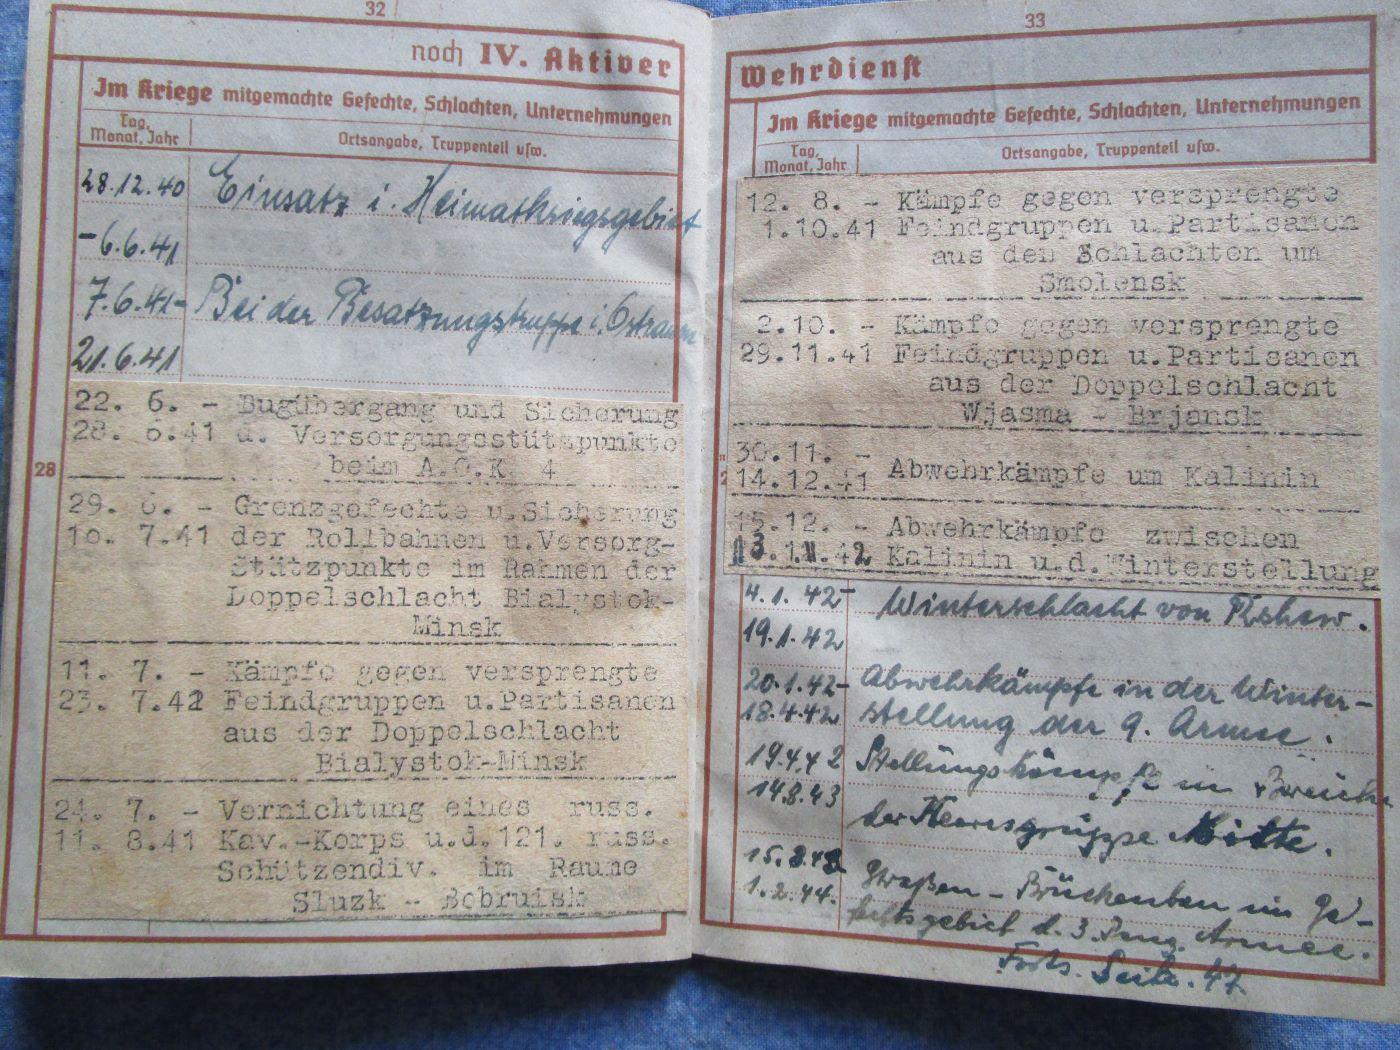 32
noch IV. Aktiver
Im Kriege mitgemachte Gefechte, Schlachten, Unternehmungen
Tag, Monat, Jahr
Ortsangabe, Truppenteil usw.
28.12.40 Einsatz i. Heimatkriegsgebiet
-6.6.41
7.6.41- Bei der Besatzungstruppe i. Ostraum
21.6.41
22. 6. - Bugübergang und Sicherung
28. 6.41 d. Versorgungsstützpunkte
beim A.O.K. 4
29. 6. - Grenzgefechte u.Sicherung
10. 7.41 der Rollbahnen u.Versorg-
Stützpunkte im Rahmen der
Doppelschlacht Bialystok-
Minsk
11. 7. - Kämpfe gegen versprengte
23. 7.42 Feindgruppen u.Partisanen
aus der Doppelschlacht
Bialystok-Minsk
24. 7. - Vernichtung eines russ.
11. 8.41 Kav.-Korps u.d.121. russ.
Schützendiv. im Raume
Sluzk - Bobruisk
28
33
Wehrdienst
Im Kriege mitgemachte Gefechte, Schlachten, Unternehmungen
Tag, Monat, Jahr
Ortsangabe, Truppenteil usw.
12. 8. - Kämpfe gegen versprengte
1.10.41 Feindgruppen u.Partisanen
aus den Schlachten um
Smolensk
2.10. - Kämpfe gegen versprengte
29.11.41 Feindgruppen u.Partisanen
aus der Doppelschlacht
Wjasma - Brjansk
30.11. -
14.12.41 Abwehrkämpfe um Kalinin
15.12. - Abwehrkämpfe zwischen
42 Kalinin u.d.Winterstellung
4.1.42- Winterschlacht von Rshew.
19.1.42
20.1.42- Abwehrkämpfe in der Winter-
18.4.42 stellung der 9. Armee.
19.4.42 Stellungskämpfe im Bereich
14.8.43 der Heeresgruppe Mitte.
15.8.43 Straßen - Brückenbau im Ge-
1.2.44. fechtsgebiet d. 3. Panz. Armee.
Forts. Seite. 47